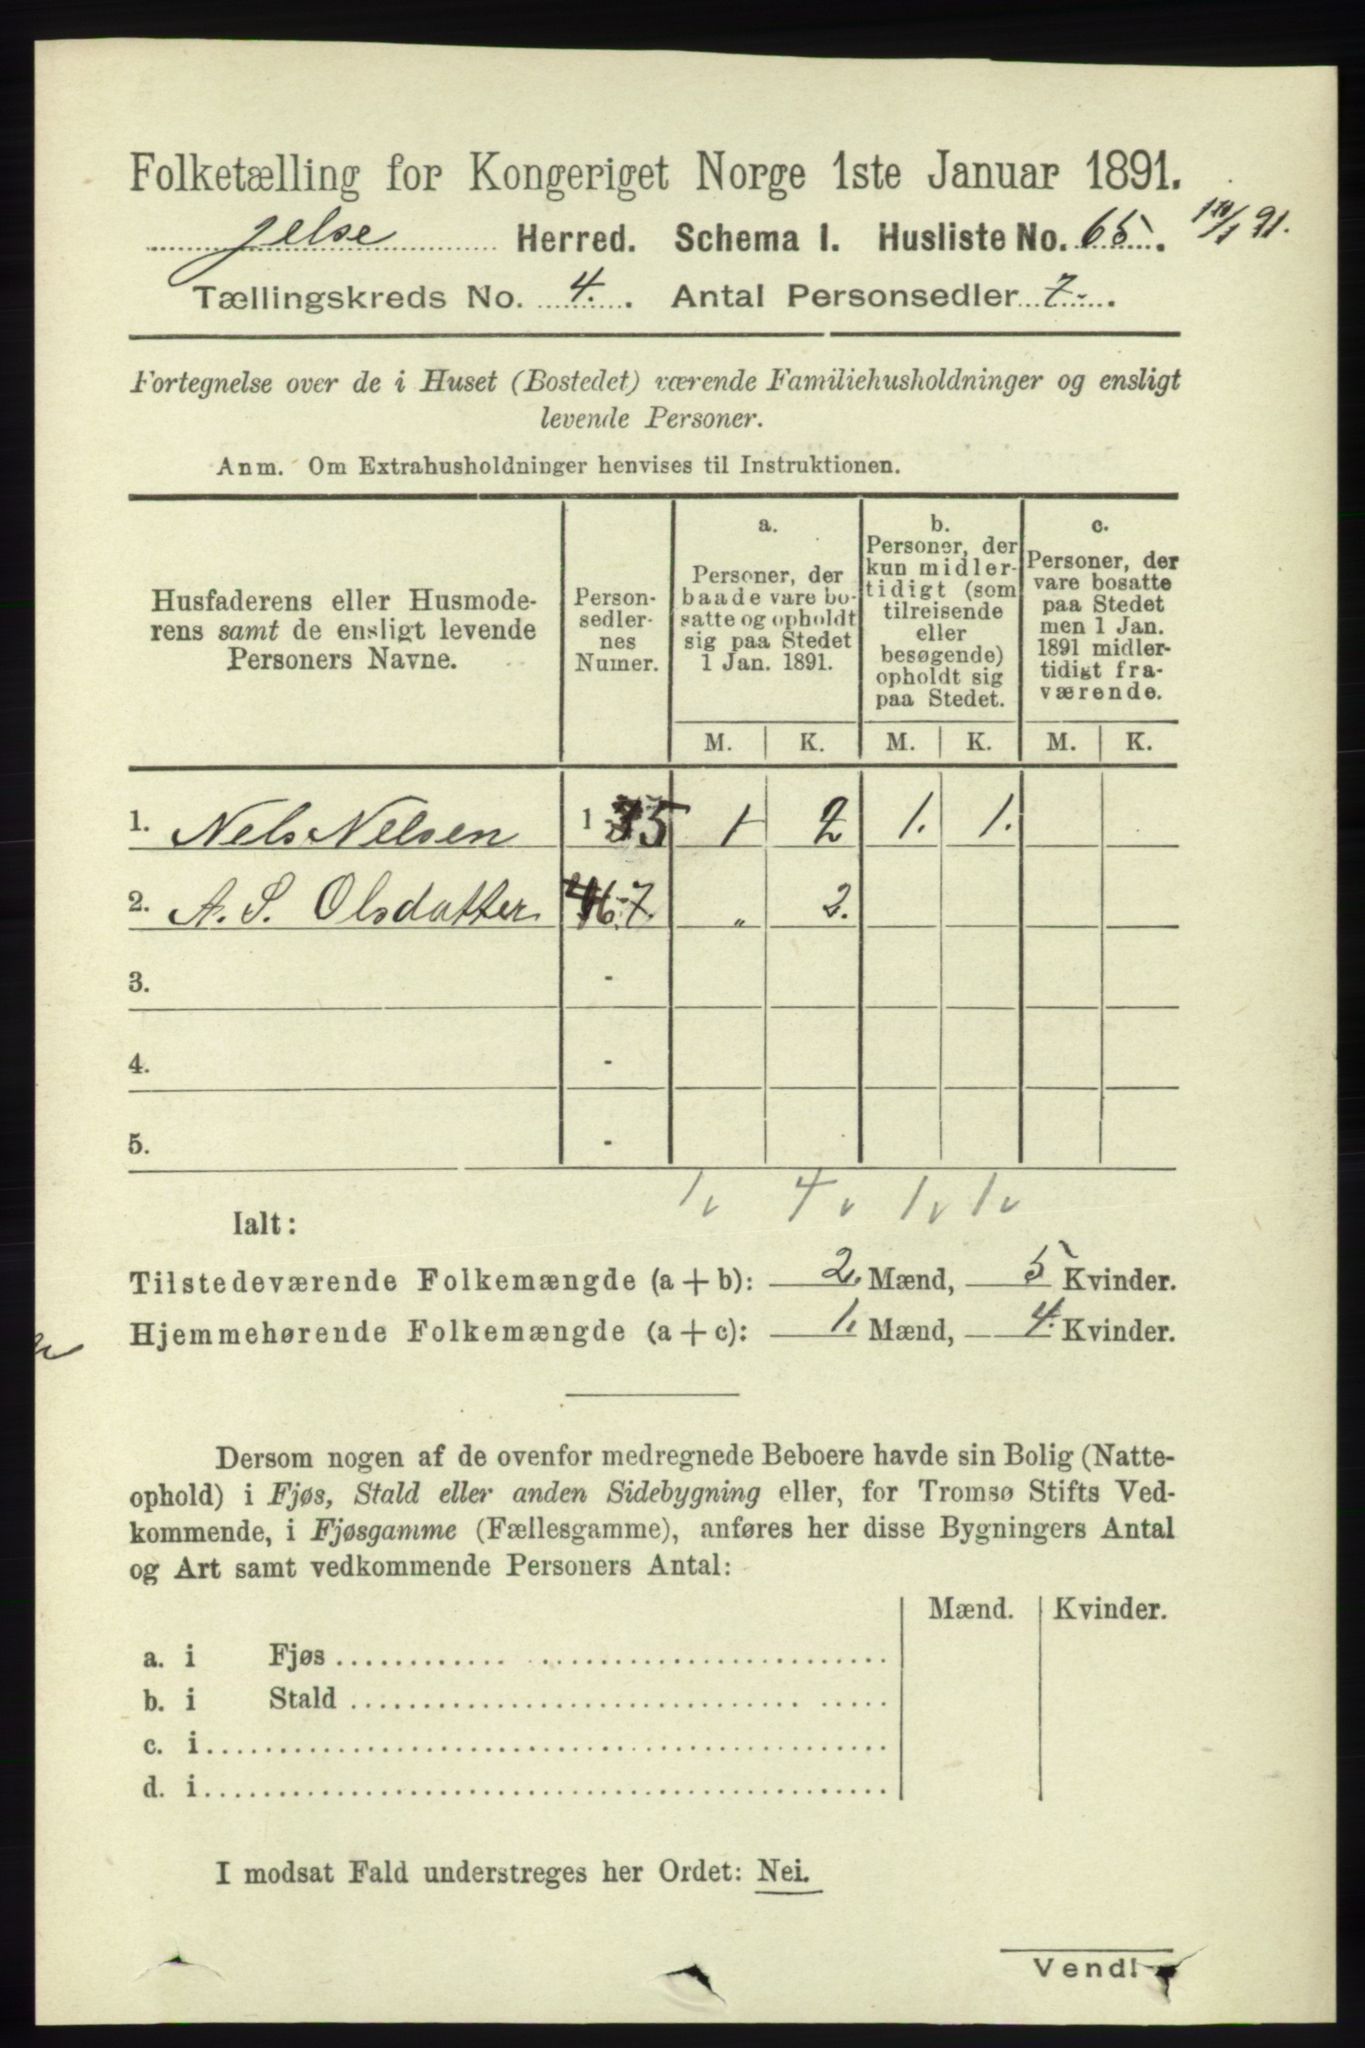 Folketælling for Kongeriget Norge 1ste Januar 1891.
Jelse Herred. Schema I. Husliste No. 65. 
Tællingskreds No. 4. Antal Personsedler 7.
Fortegnelse over de i Huset (Bostedet) værende Familiehusholdninger og ensligt
levende Personer.
Anm. Om Extrahusholdninger henvises til Instruktionen.
Husfaderens eller Husmode-
rens samt de ensligt levende
Personers Navne.
Person-
sedler-
nes
Numer.
a.
Personer, der
baade vare bo-
satte og opholdt
sig paa Stedet
1 Jan. 1891.
b.
Personer, der
kun midler-
tidigt (som
tilreisende
eller
besøgende)
opholdt sig
paa Stedet.
c.
Personer, der
vare bosatte
paa Stedet
men 1 Jan.
1891 midler-
tidigt fra-
værende.
M. K. M. K. M. K.
1. Nels Nelsen 1 5 1 2 1. 1.
2. A. S. Olsdatter 6-7. „ 2.
3. -
4. -
5. -
1 4 1 1
Ialt:
Tilstedeværende Folkemængde (a + b): 2. Mænd, 5 Kvinder.
Hjemmehørende Folkemængde (a + c): 1. Mænd, 4. Kvinder.
Dersom nogen af de ovenfor medregnede Beboere havde sin Bolig (Natte-
ophold) i Fjøs, Stald eller anden Sidebygning eller, for Tromsø Stifts Ved-
kommende, i Fjøsgamme (Fællesgamme), anføres her disse Bygningers Antal
og Art samt vedkommende Personers Antal:
Mænd. Kvinder.
a. i Fjøs
b. i Stald
c. i
d. i
I modsat Fald understreges her Ordet: Nei.
Vend!